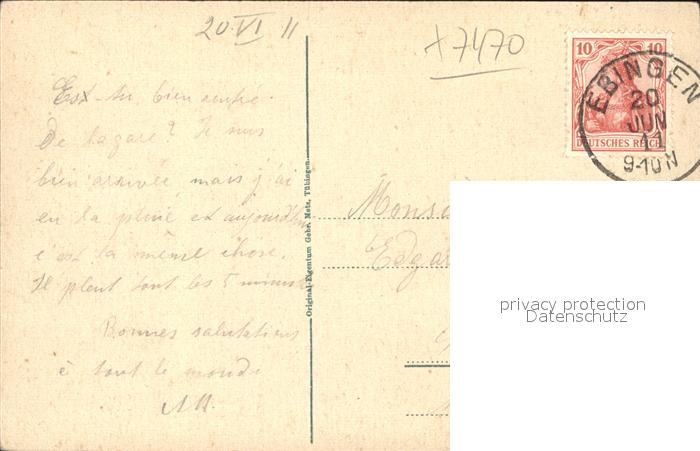 20 VI 11
+7470
10 10
DEUTSCHES REICH
EBINGEN
20
JUN
11
9-10 N
Est-tu bien rentré
de la gare? Je suis
bien arrivée, mais j'ai
eu la pluie et aujourd'hui
c'est la même chose.
Il pleut tout les 5 minutes
Bonnes salutations
à tout le monde
Original-Eigentum Gebr. Metz, Tübingen
Monsi
Edgar
privacy protection
Datenschutz